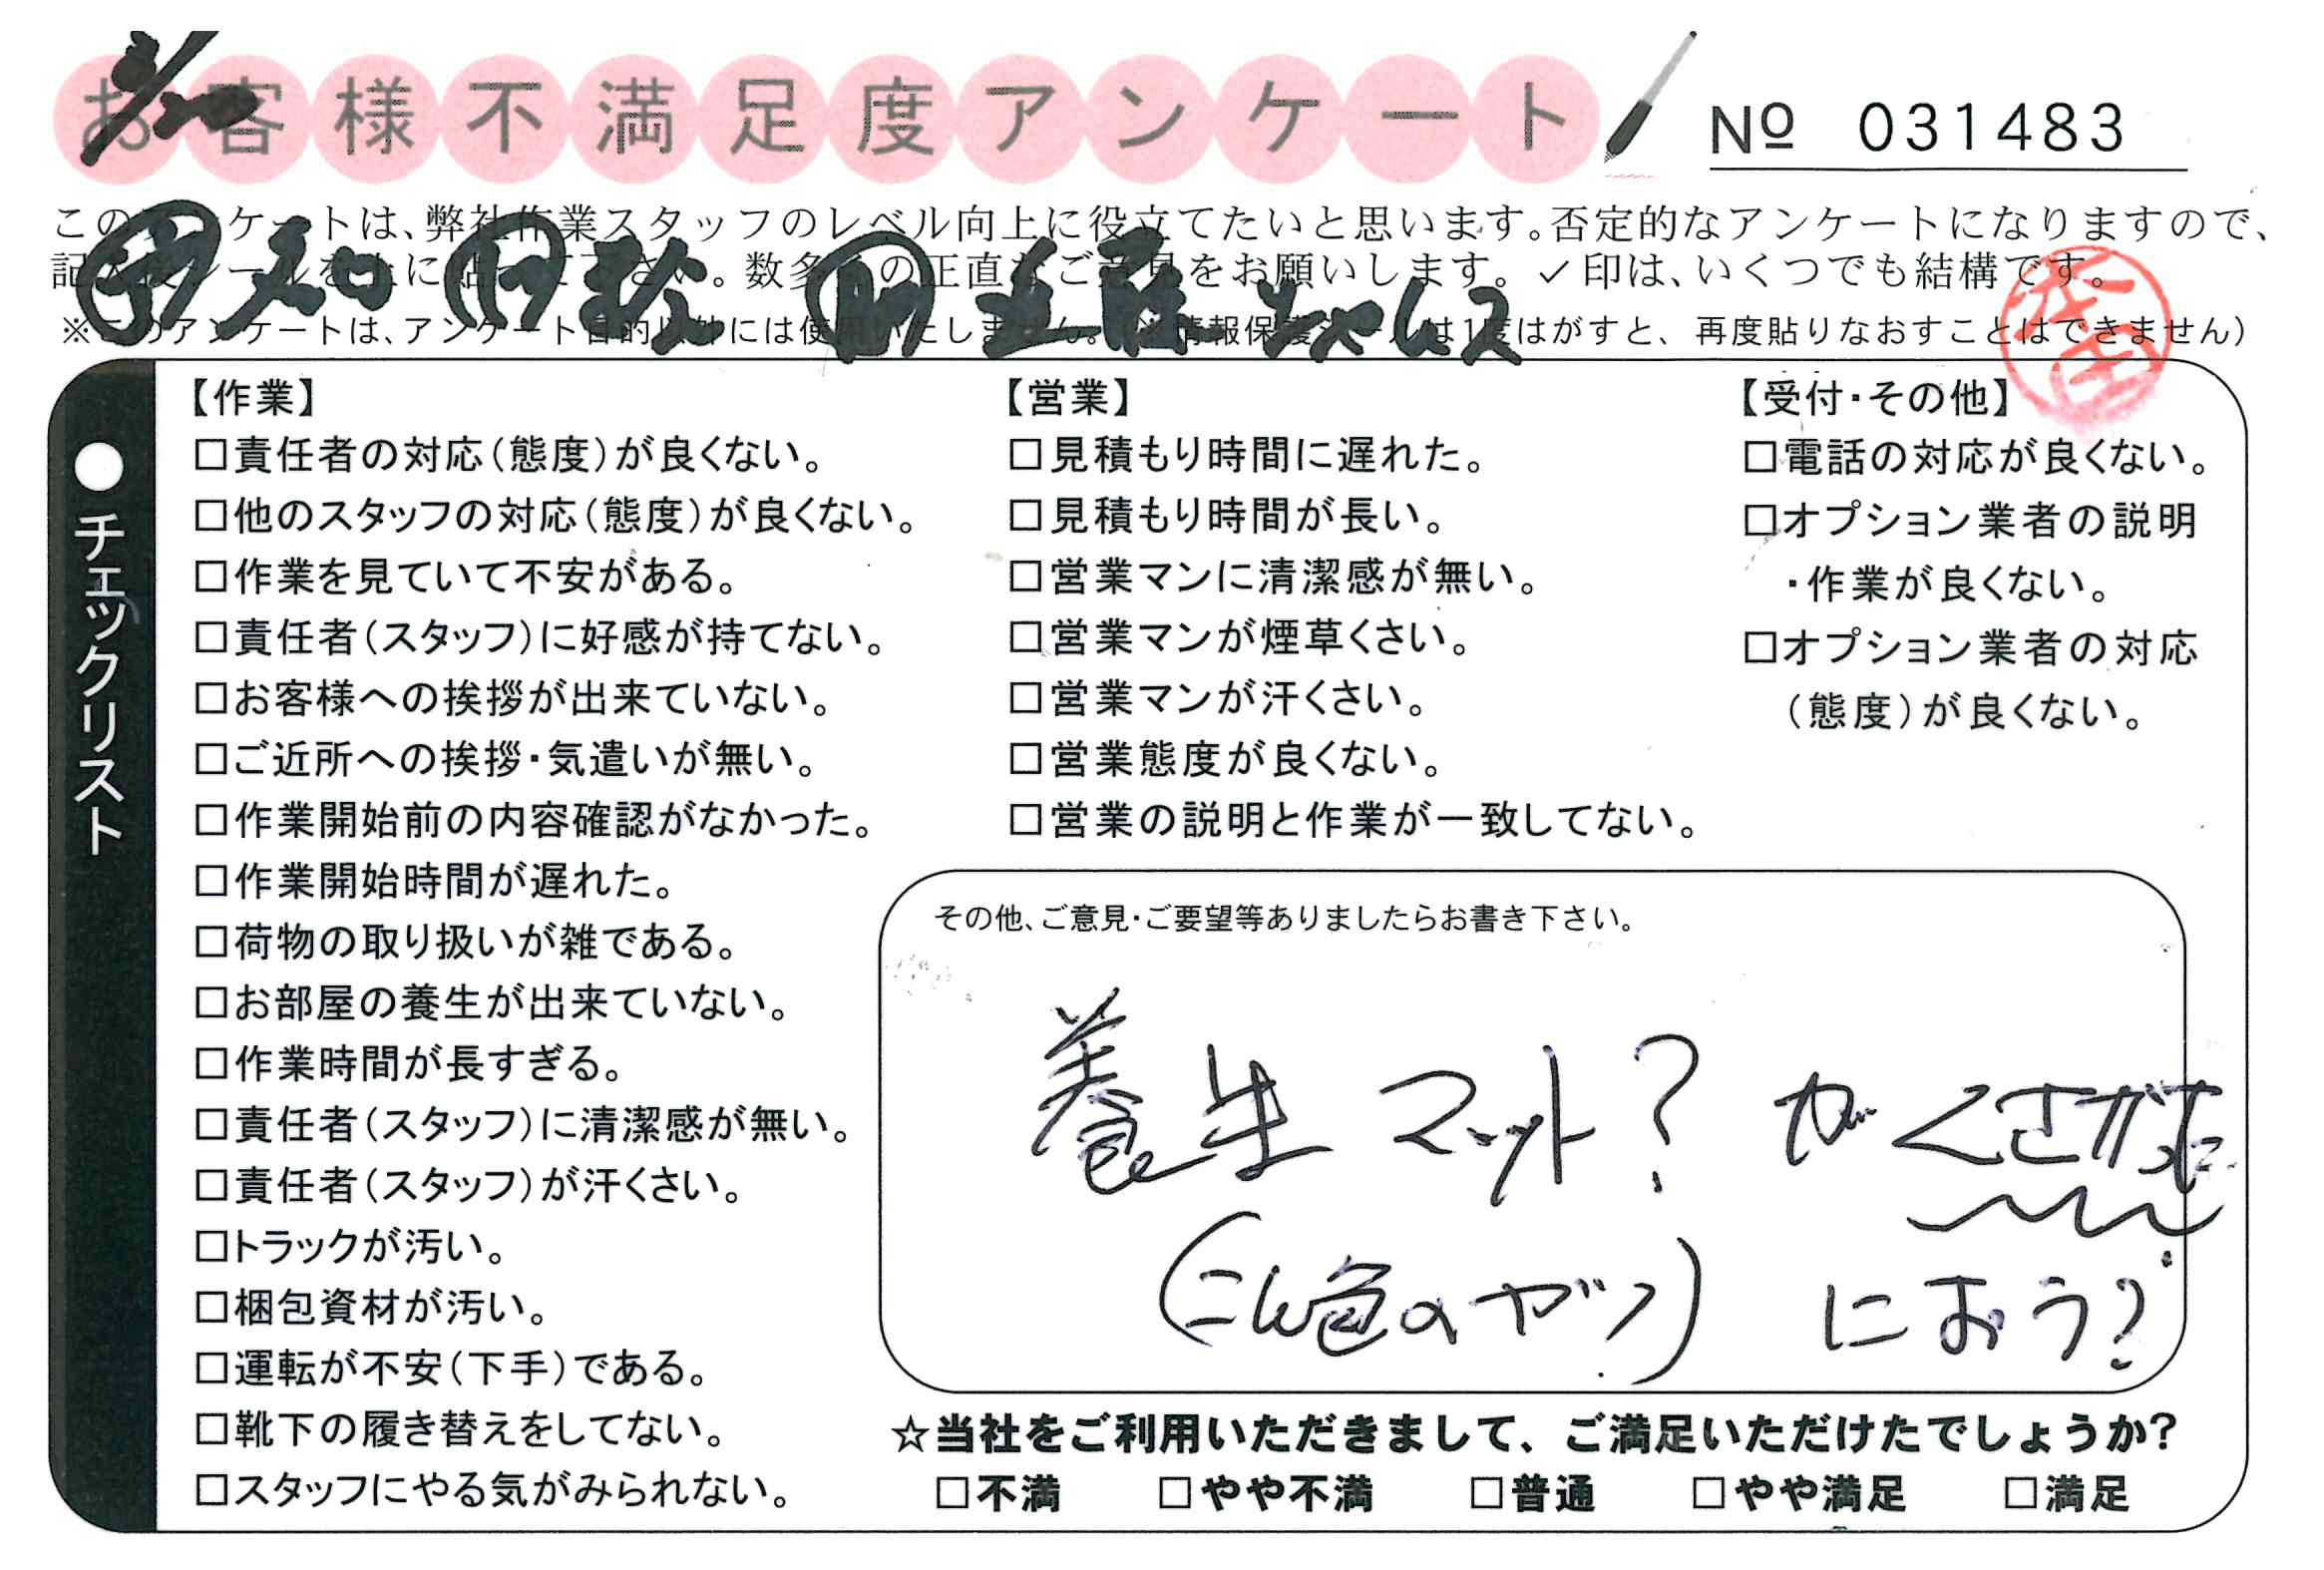 お客様不満足度アンケート
№ 031483
このアンケートは、弊社作業スタッフのレベル向上に役立てたいと思います。否定的なアンケートになりますので、
記入後シールを上に貼って下さい。数多くの正直なご意見をお願いします。✓印は、いくつでも結構です。
※このアンケートは、アンケート目的以外には使用いたしません。(※情報保護シールは1度はがすと、再度貼りなおすことはできません)
●チェックリスト
【作業】
□責任者の対応(態度)が良くない。
□他のスタッフの対応(態度)が良くない。
□作業を見ていて不安がある。
□責任者(スタッフ)に好感が持てない。
□お客様への挨拶が出来ていない。
□ご近所への挨拶・気遣いが無い。
□作業開始前の内容確認がなかった。
□作業開始時間が遅れた。
□荷物の取り扱いが雑である。
□お部屋の養生が出来ていない。
□作業時間が長すぎる。
□責任者(スタッフ)に清潔感が無い。
□責任者(スタッフ)が汗くさい。
□トラックが汚い。
□梱包資材が汚い。
□運転が不安(下手)である。
□靴下の履き替えをしてない。
□スタッフにやる気がみられない。
【営業】
□見積もり時間に遅れた。
□見積もり時間が長い。
□営業マンに清潔感が無い。
□営業マンが煙草くさい。
□営業マンが汗くさい。
□営業態度が良くない。
□営業の説明と作業が一致してない。
【受付・その他】
□電話の対応が良くない。
□オプション業者の説明
・作業が良くない。
□オプション業者の対応
(態度)が良くない。
その他、ご意見・ご要望等ありましたらお書き下さい。
養生マット? がくさかった
(こん色のヤツ) におう?
☆当社をご利用いただきまして、ご満足いただけたでしょうか?
□不満 □やや不満 □普通 □やや満足 □満足